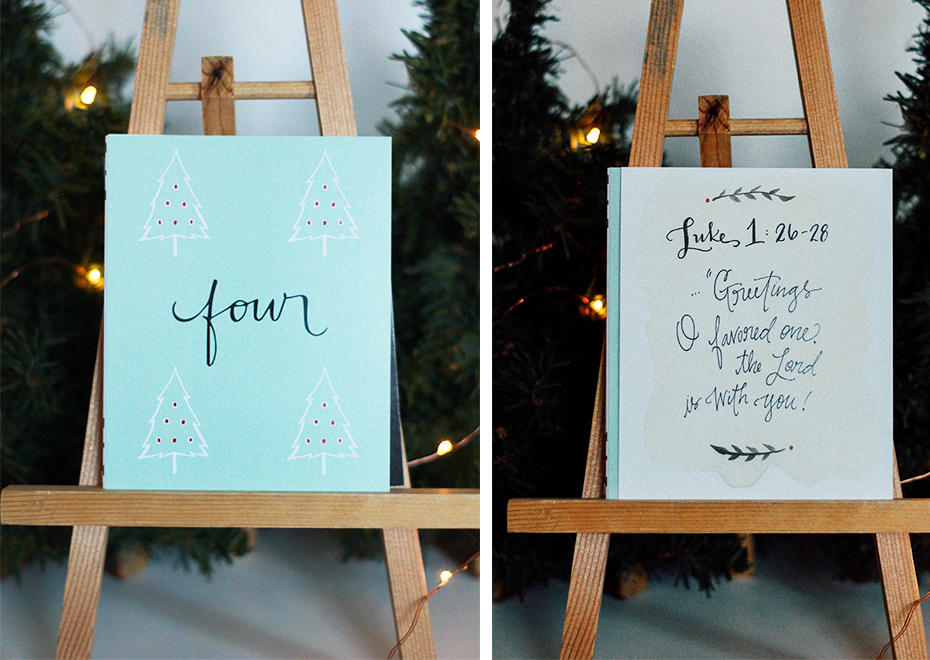 four
Luke 1:26-28
..."Greetings
O favored one,
the Lord
is with you!